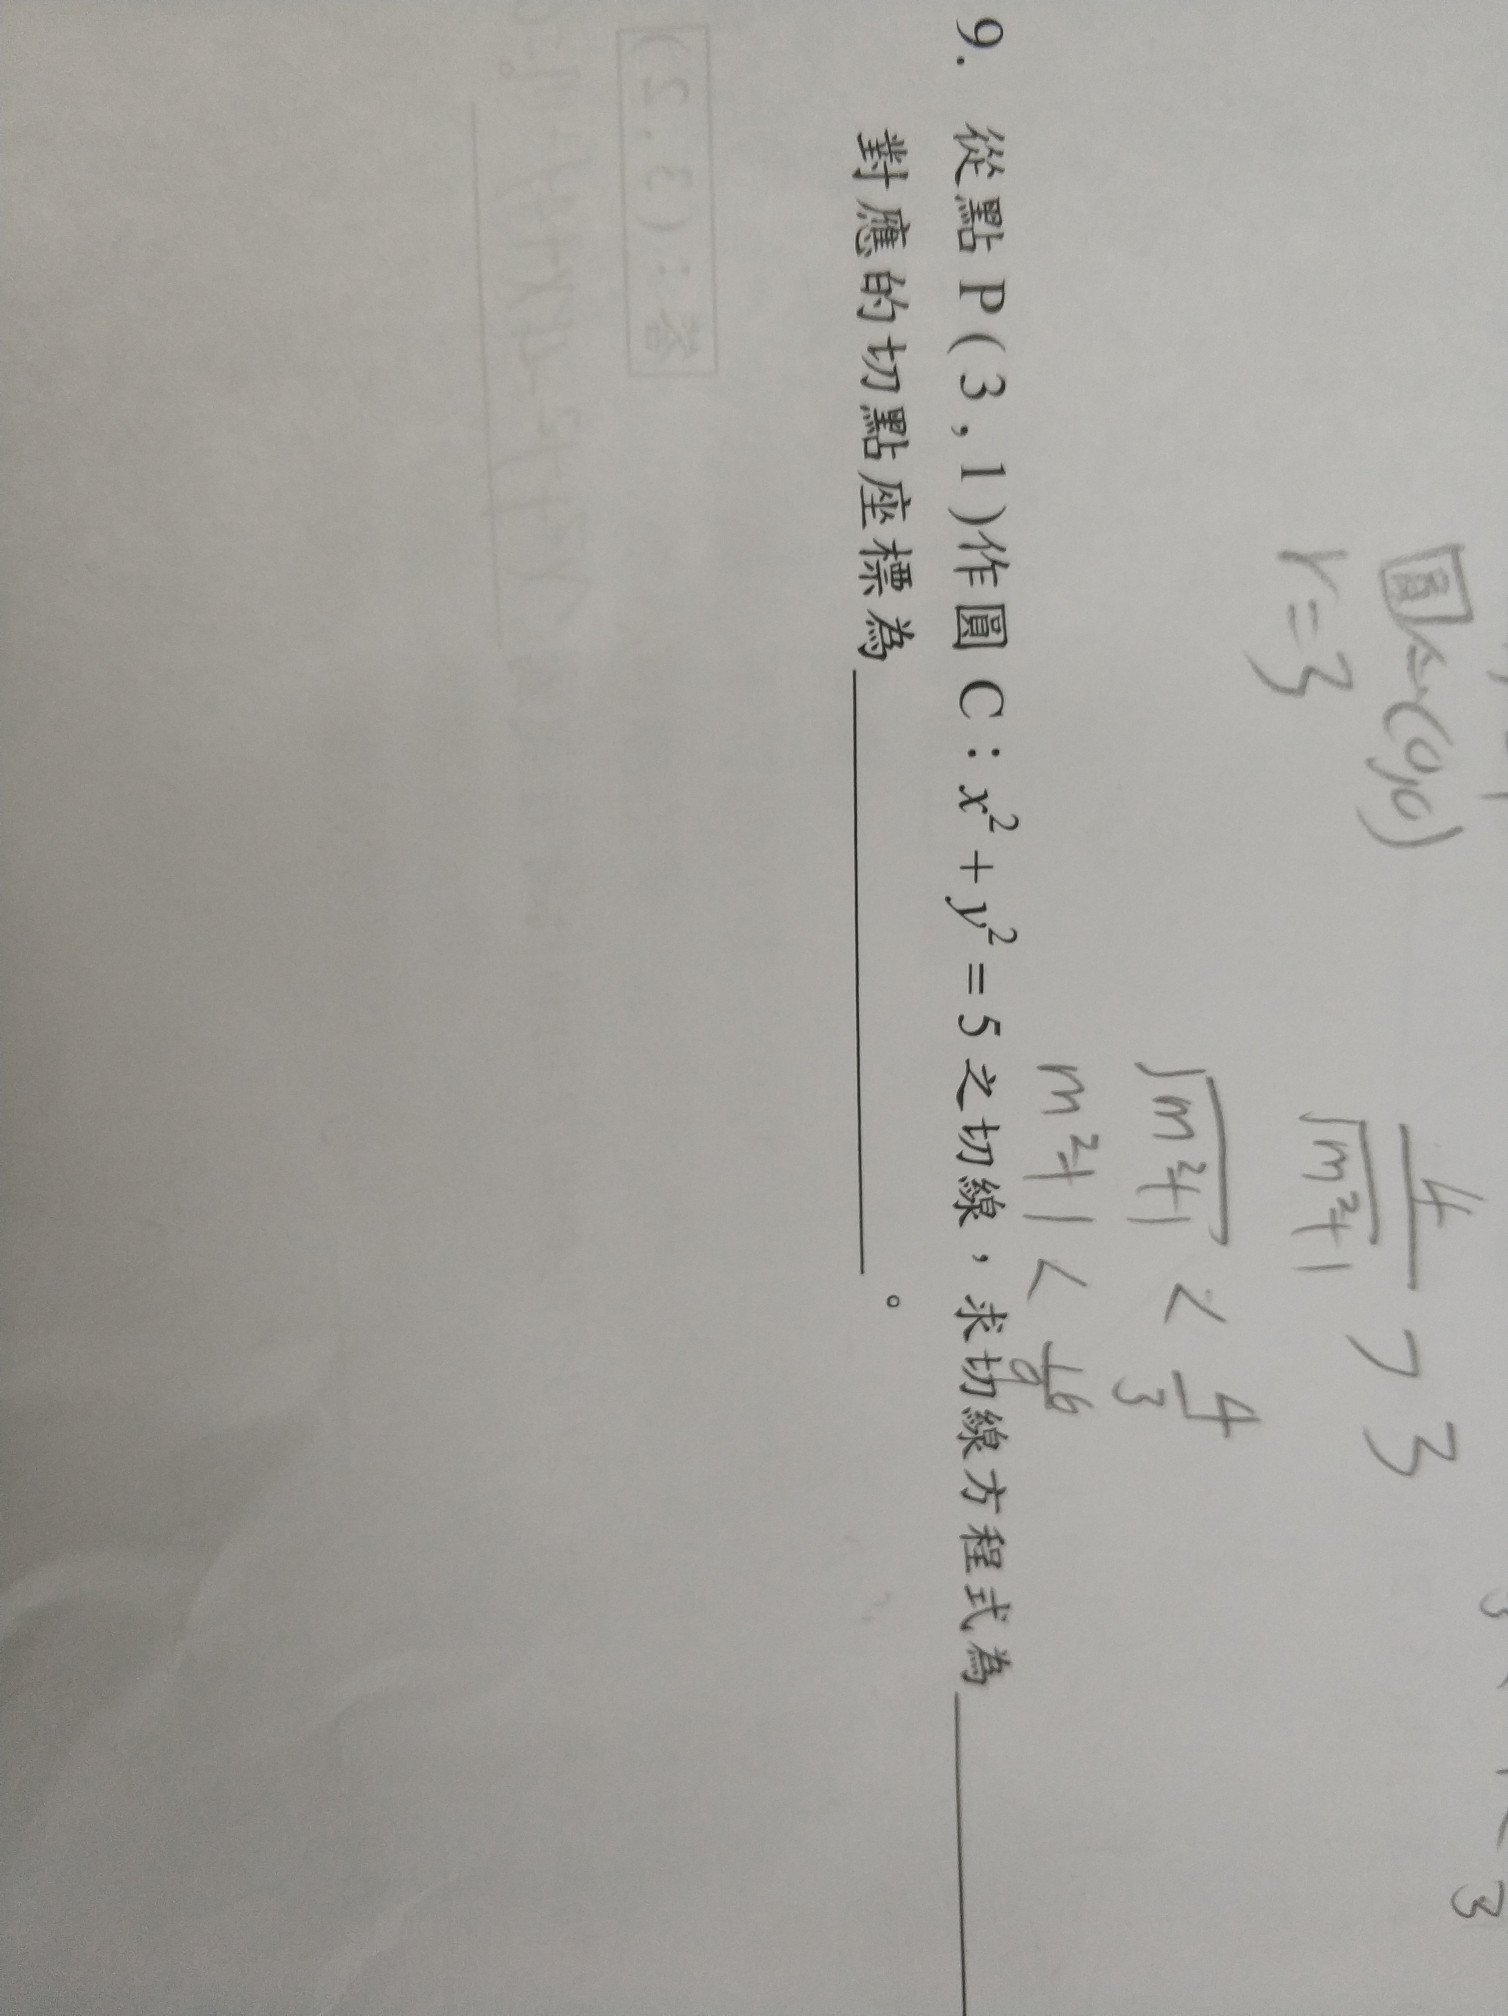 圓心(0,0)
r=3
4/√m²+1 > 3
√m²+1 < 4/3
m²+1 < 16/9
9. 從點 P(3,1)作圓 C:x²+y²=5之切線,求切線方程式為
對應的切點座標為 。